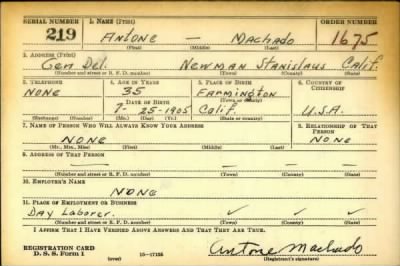 SERIAL NUMBER 1. NAME (Print) ORDER NUMBER
219 ANTONE — MACHADO 1675
(First) (Middle) (Last)
2. ADDRESS (Print)
Gen Del. Newman Stanislaus Calif.
(Number and street or R. F. D. number) (Town) (County) (State)
3. TELEPHONE 4. AGE IN YEARS 5. PLACE OF BIRTH 6. COUNTRY OF CITIZENSHIP
NONE 35 Farmington
DATE OF BIRTH (Town or county)
7-25-1905 Calif. U.S.A.
(Exchange) (Number) (Mo.) (Day) (Yr.) (State or country)
7. NAME OF PERSON WHO WILL ALWAYS KNOW YOUR ADDRESS 8. RELATIONSHIP OF THAT PERSON
NONE NONE
(Mr., Mrs., Miss) (First) (Middle) (Last)
9. ADDRESS OF THAT PERSON
— — — —
(Number and street or R. F. D. number) (Town) (County) (State)
10. EMPLOYER'S NAME
NONE
11. PLACE OF EMPLOYMENT OR BUSINESS
Day Laborer. ✓ ✓ ✓
(Number and street or R. F. D. number) (Town) (County) (State)
I AFFIRM THAT I HAVE VERIFIED ABOVE ANSWERS AND THAT THEY ARE TRUE.
REGISTRATION CARD
D. S. S. Form 1 (over) 16—17105 Antone Machado